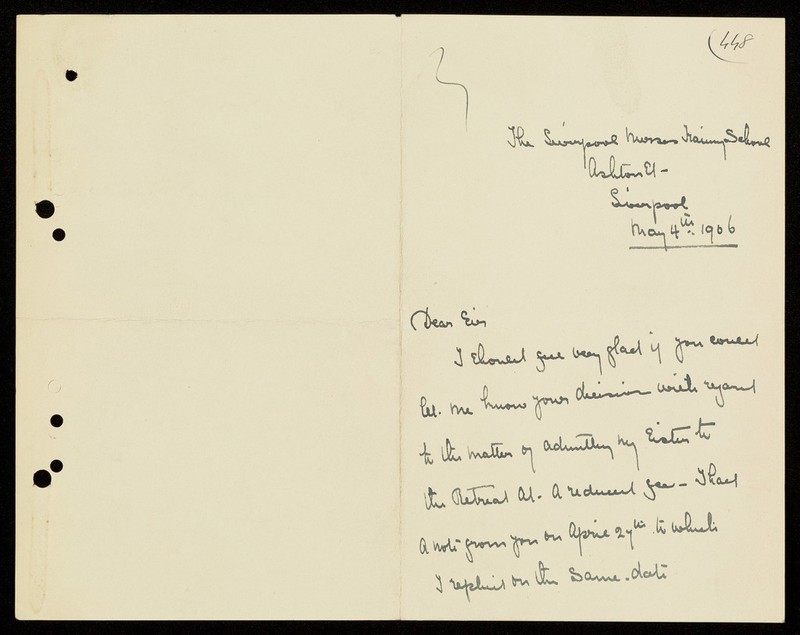 448
The Liverpool Nurses Training School
Ashton St -
Liverpool
May 4th. 1906
Dear Sir
I should feel very glad if you could
let. me know your decision with regard
to the matter of admitting my Sister to
the Retreat at. a reduced fee - I had
a note from you on April 27th. to which
I replied on the same. date